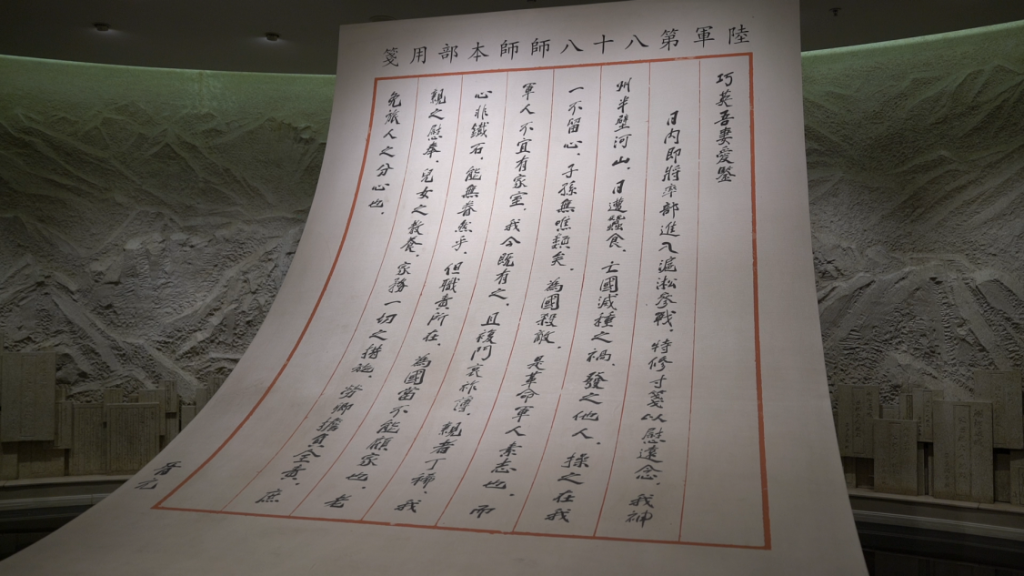 陸軍第八十八師師本部用箋
巧英吾妻愛鑒
日内即將率部進入滬淞參戰,特修寸箋以慰遠念。我神
州半壁河山,日遭蠶食,亡國滅種之禍,發之他人,操之在我
一不留心,子孫無噍類矣。為國殺敵,是革命軍人素志也。而
軍人不宜有家室,我今既有之,且復門衰祚薄,親者丁稀,我
心非鐵石,能無眷然乎。但職責所在,為國當不能顧家也。老
親之慰奉,兒女之教養,家務一切之措施,勞卿擔負全責,庶
免旅人之分心也。
晉元